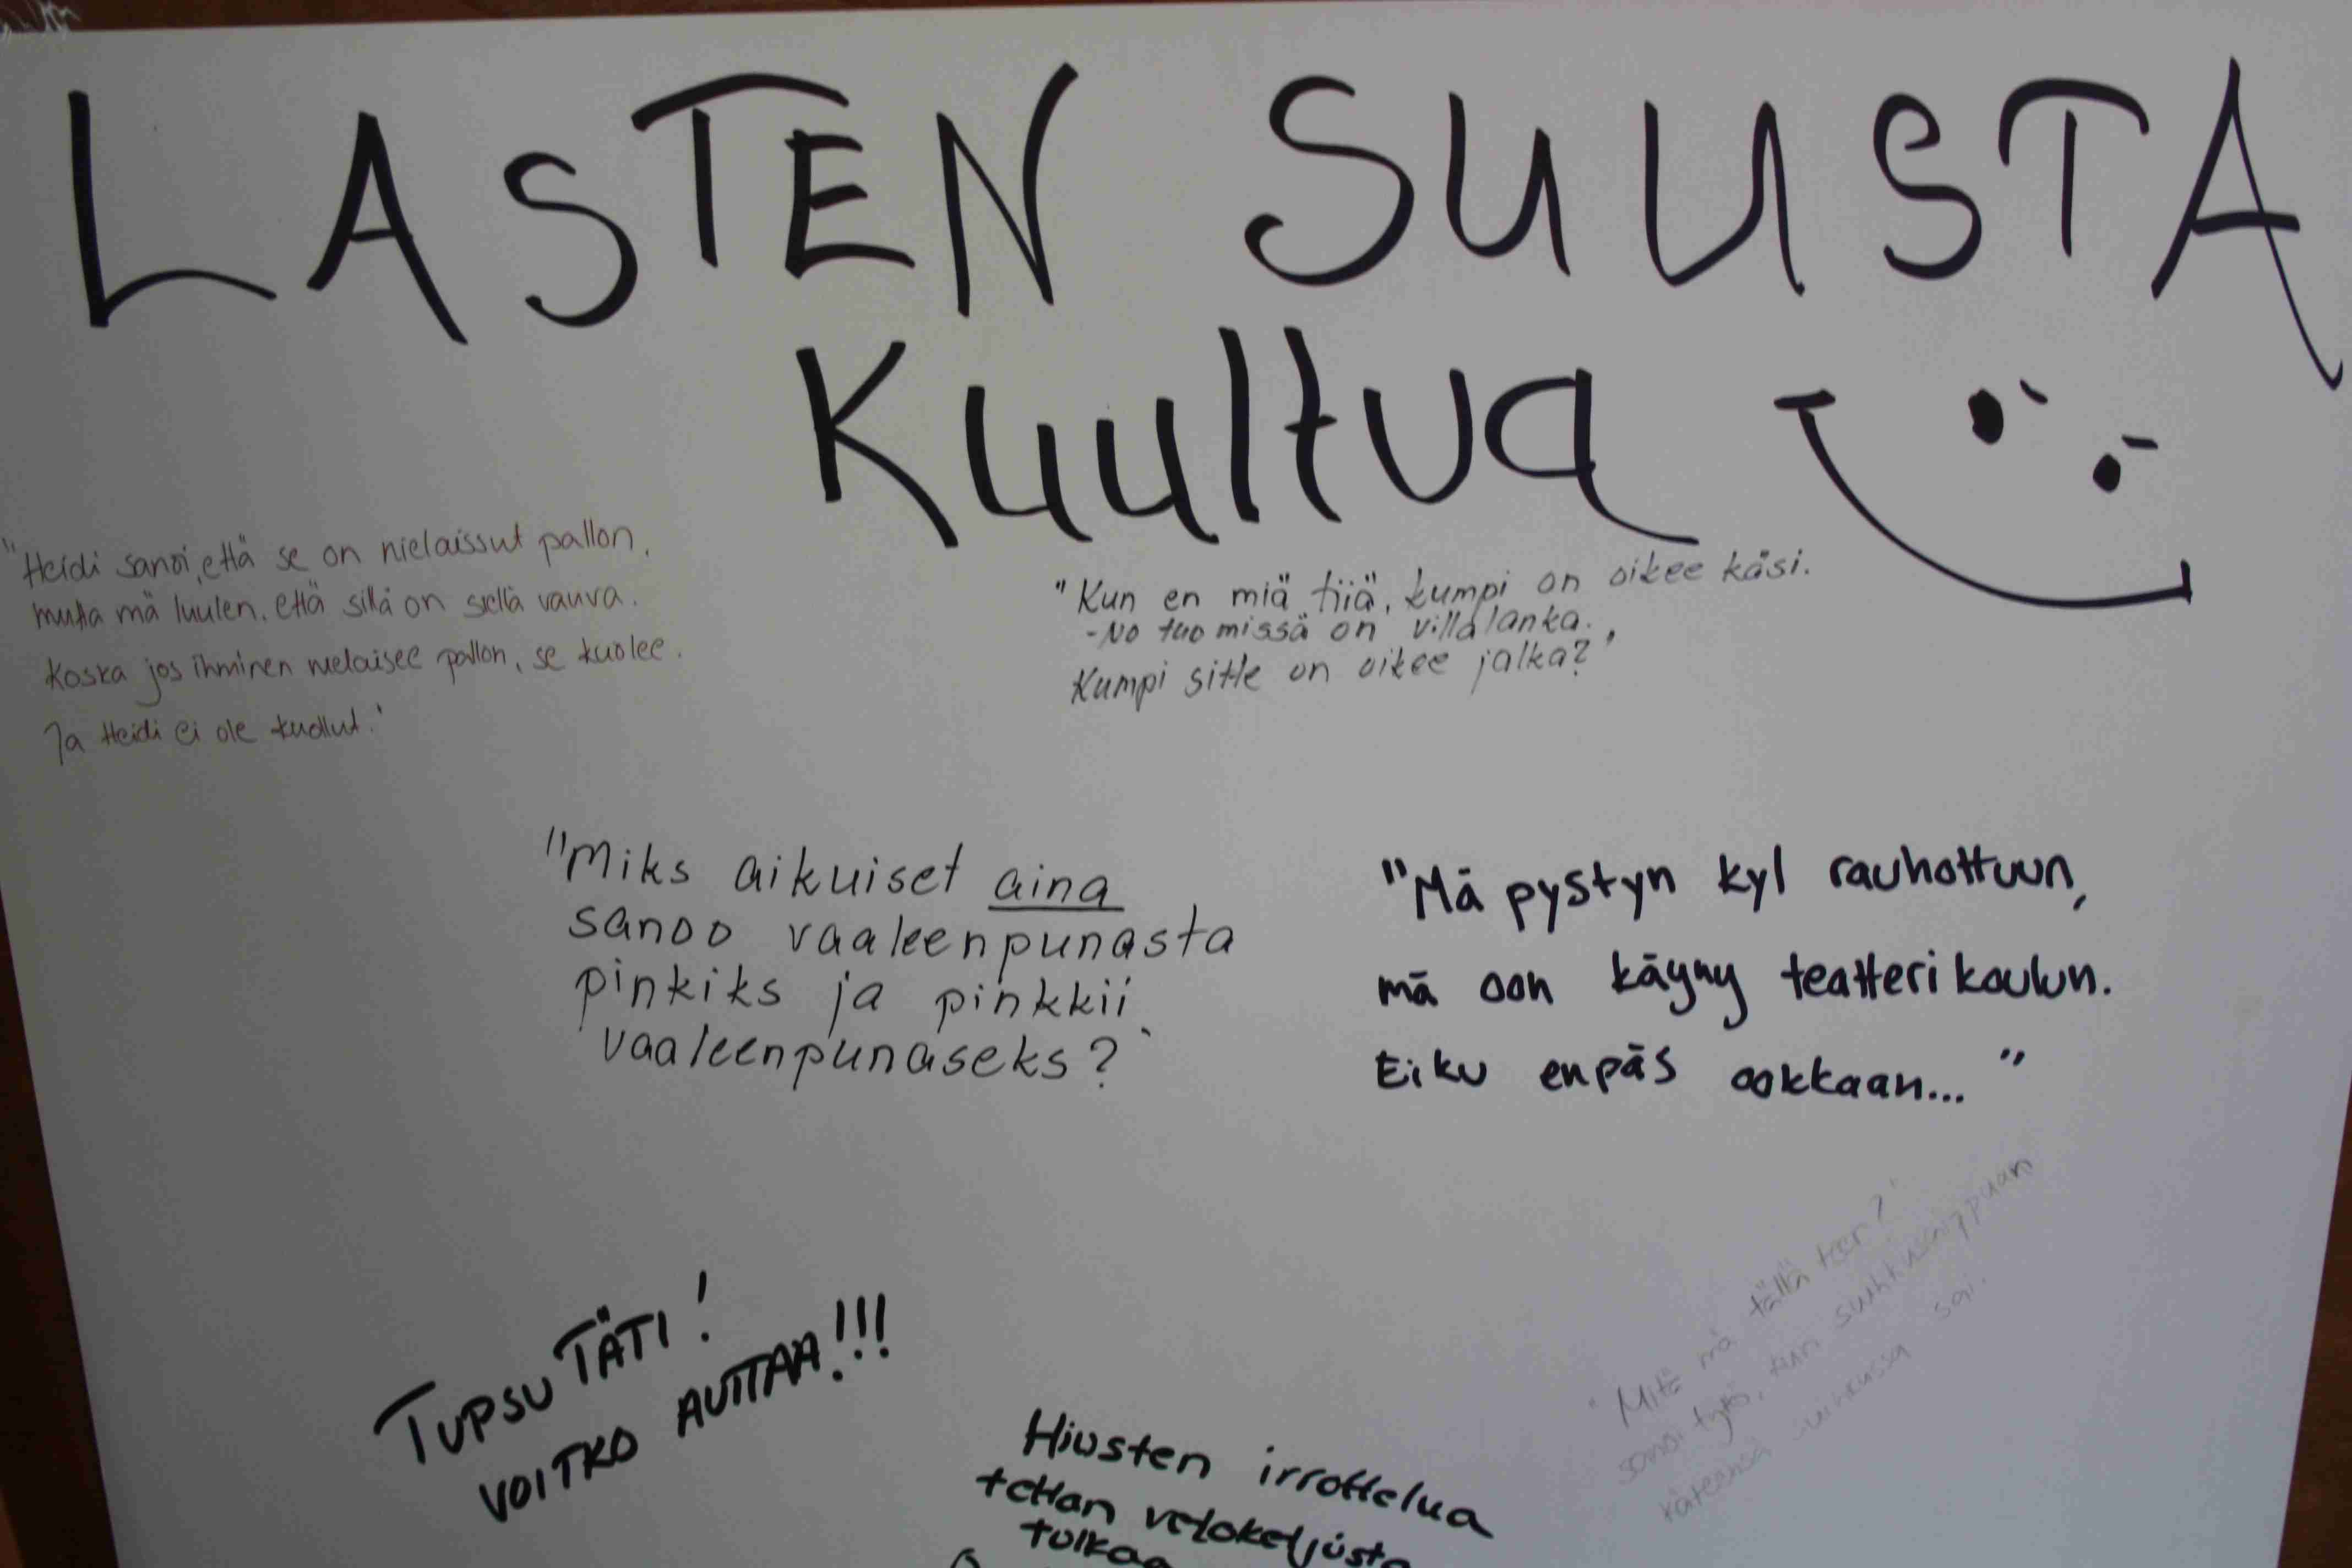 LASTEN SUUSTA
Kuultua
"Heidi sanoi, että se on nielaissut pallon,
mutta mä luulen, että sillä on siellä vauva.
Koska jos ihminen nielaisee pallon, se kuolee.
Ja Heidi ei ole kuollut."
"Kun en miä tiiä, kumpi on oikee käsi.
-No tuo missä on villalanka.
Kumpi sitte on oikee jalka?"
"Miks aikuiset aina
sanoo vaaleenpunasta
pinkiks ja pinkkii
vaaleenpunaseks?"
"Mä pystyn kyl rauhottuun,
mä oon käyny teatterikoulun.
Eiku enpäs ookkaan..."
TUPSU TÄTI!
VOITKO AUTTAA!!!
"Mitä mä tällä teen?"
sanoi tyttö, kun suihkusaippuan
käteensä suihkussa sai.
Hiusten irrottelua
teltan vetoketjusta
tulkaa